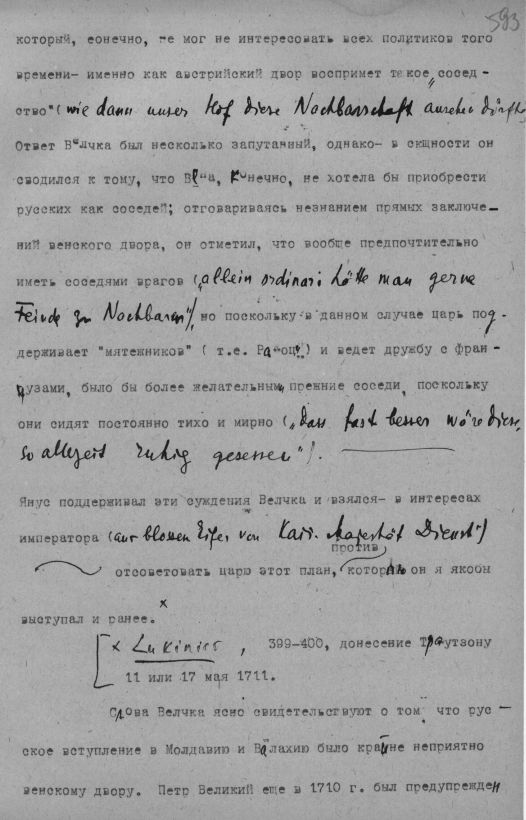 593
который, еонечно, не мог не интересовать всех политиков того
времени- именно как австрийский двор воспримет такое „сосед -
ство" (wie dann unser Hof diese Nachbarschaft ansehen dürfte)
Ответ Велчка был несколько запутанный, однако- в скщности он
сводился к тому, что Вена, конечно, не хотела бы приобрести
русских как соседей; отговариваясь незнанием прямых заключе-
ний венского двора, он отметил, что вообще предпочтительно
иметь соседями врагов („allein ordinari hätte man gerne
Feinde zu Nachbaren"), но поскольку в данном случае царь под-
держивает "мятежников" ( т.е. Ракоци) и ведет дружбу с фран -
цузами, было бы более желательным прежние соседи, поскольку
они сидят постоянно тихо и мирно („dass fast besser wäre diese,
so allezeit ruhig gesessen").
Янус поддерживал эти суждения Велчка и взялся- в интересах
императора (aus blossen Eifer von Kais. Majestät Dienst")
отсоветовать царю этот план, против которых он я якобы
выступал и ранее. x
x Lukinics, 399-400, донесение Траутзону
11 или 17 мая 1711.
Слова Велчка ясно свидетельствуют о том, что рус -
ское вступление в Молдавию и Валахию было крайне неприятно
венскому двору. Петр Великий еще в 1710 г. был предупрежден